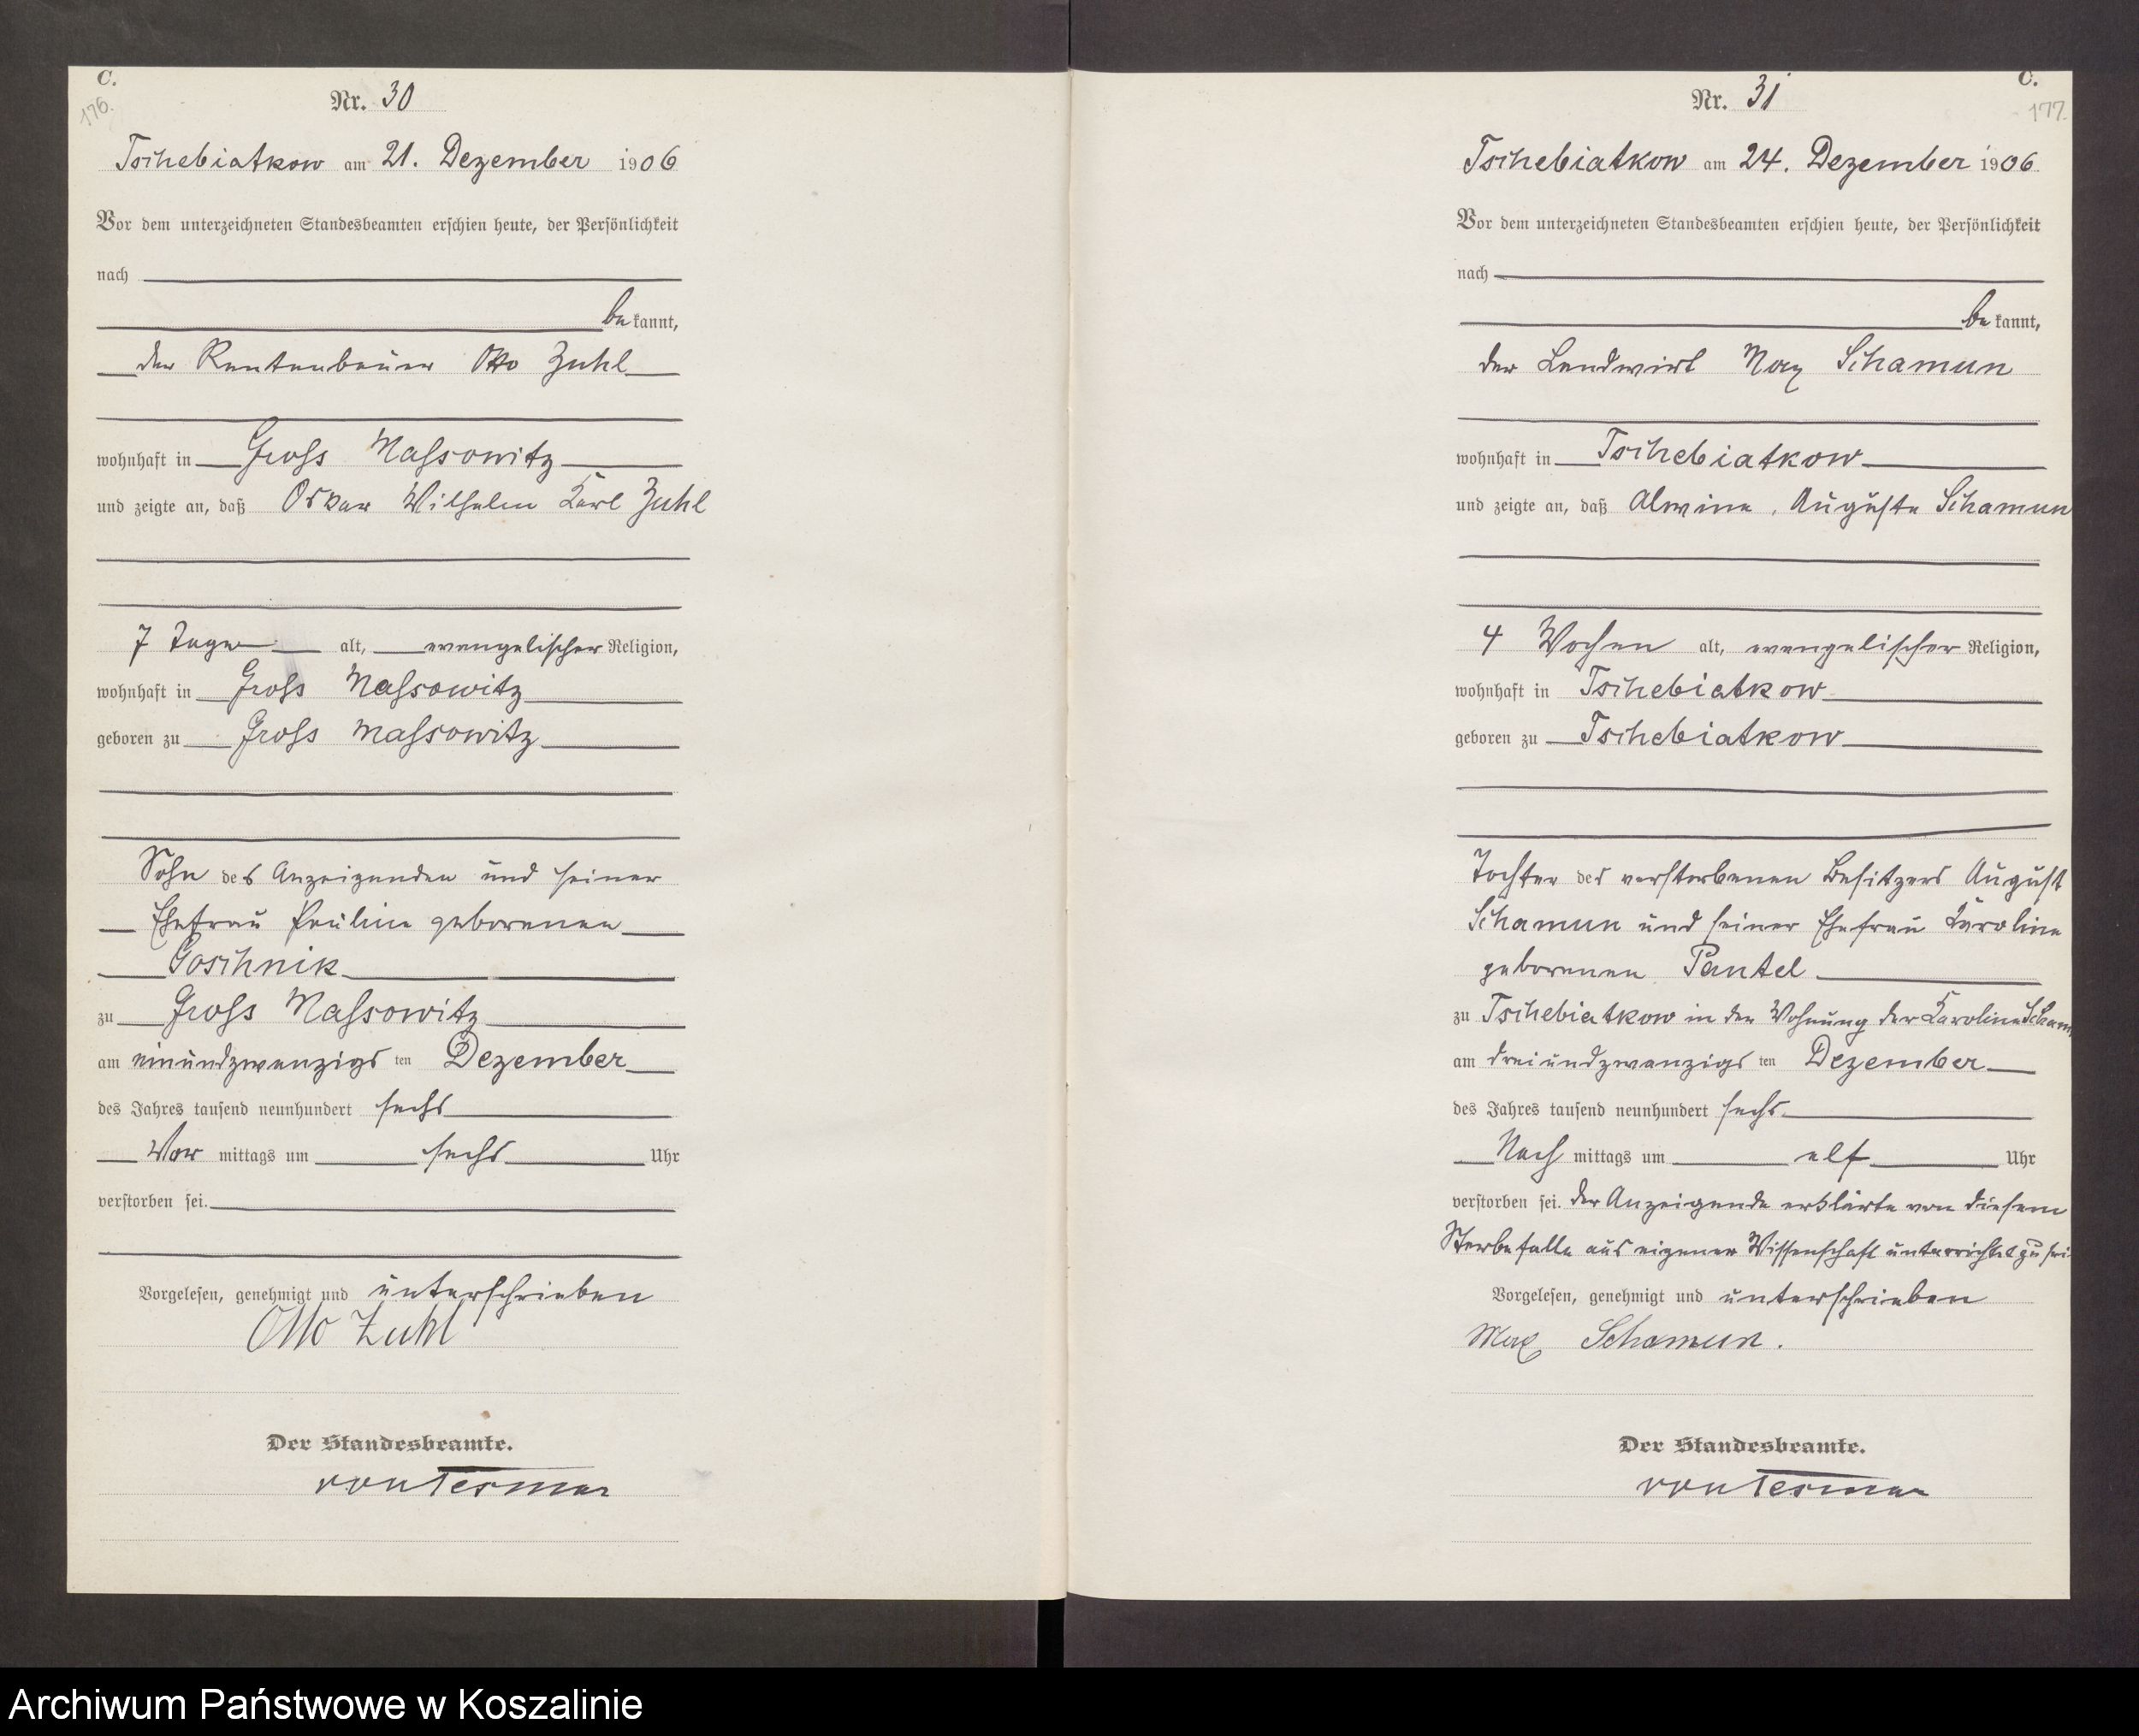 C.
176.
Nr. 30
Tschebiatkow am 21. Dezember 1906
Vor dem unterzeichneten Standesbeamten erschien heute, der Persönlichkeit
nach
be kannt,
der Rentenbauer Otto Zuhl
wohnhaft in Gross Massowitz
und zeigte an, daß Oskar Wilhelm Karl Zuhl
7 Tage alt, evangelischer Religion,
wohnhaft in Gross Massowitz
geboren zu Gross Massowitz
Sohn des Anzeigenden und seiner
Ehefrau Pauline geborenen
Goschnik
zu Gross Massowitz
am einundzwanzigs ten Dezember
des Jahres tausend neunhundert sechs
Vor mittags um sechs Uhr
verstorben sei.
Vorgelesen, genehmigt und unterschrieben
Otto Zuhl
Der Standesbeamte.
von Tesmar
C.
177.
Nr. 31
Tschebiatkow am 24. Dezember 1906
Vor dem unterzeichneten Standesbeamten erschien heute, der Persönlichkeit
nach
be kannt,
der Landwirt Max Schamun
wohnhaft in Tschebiatkow
und zeigte an, daß Alwine, Auguste Schamun
4 Wochen alt, evangelischer Religion,
wohnhaft in Tschebiatkow
geboren zu Tschebiatkow
Tochter des verstorbenen Besitzers August
Schamun und seiner Ehefrau Karoline
geborenen Pantel
zu Tschebiatkow in der Wohnung der Karoline Scham
am dreiundzwanzigs ten Dezember
des Jahres tausend neunhundert sechs
Nach mittags um elf Uhr
verstorben sei. Der Anzeigende erklärte von diesem
Sterbefalle aus eigener Wissenschaft unterrichtet zu sei
Vorgelesen, genehmigt und unterschrieben
Max Schamun.
Der Standesbeamte.
von Tesmar
Archiwum Państwowe w Koszalinie